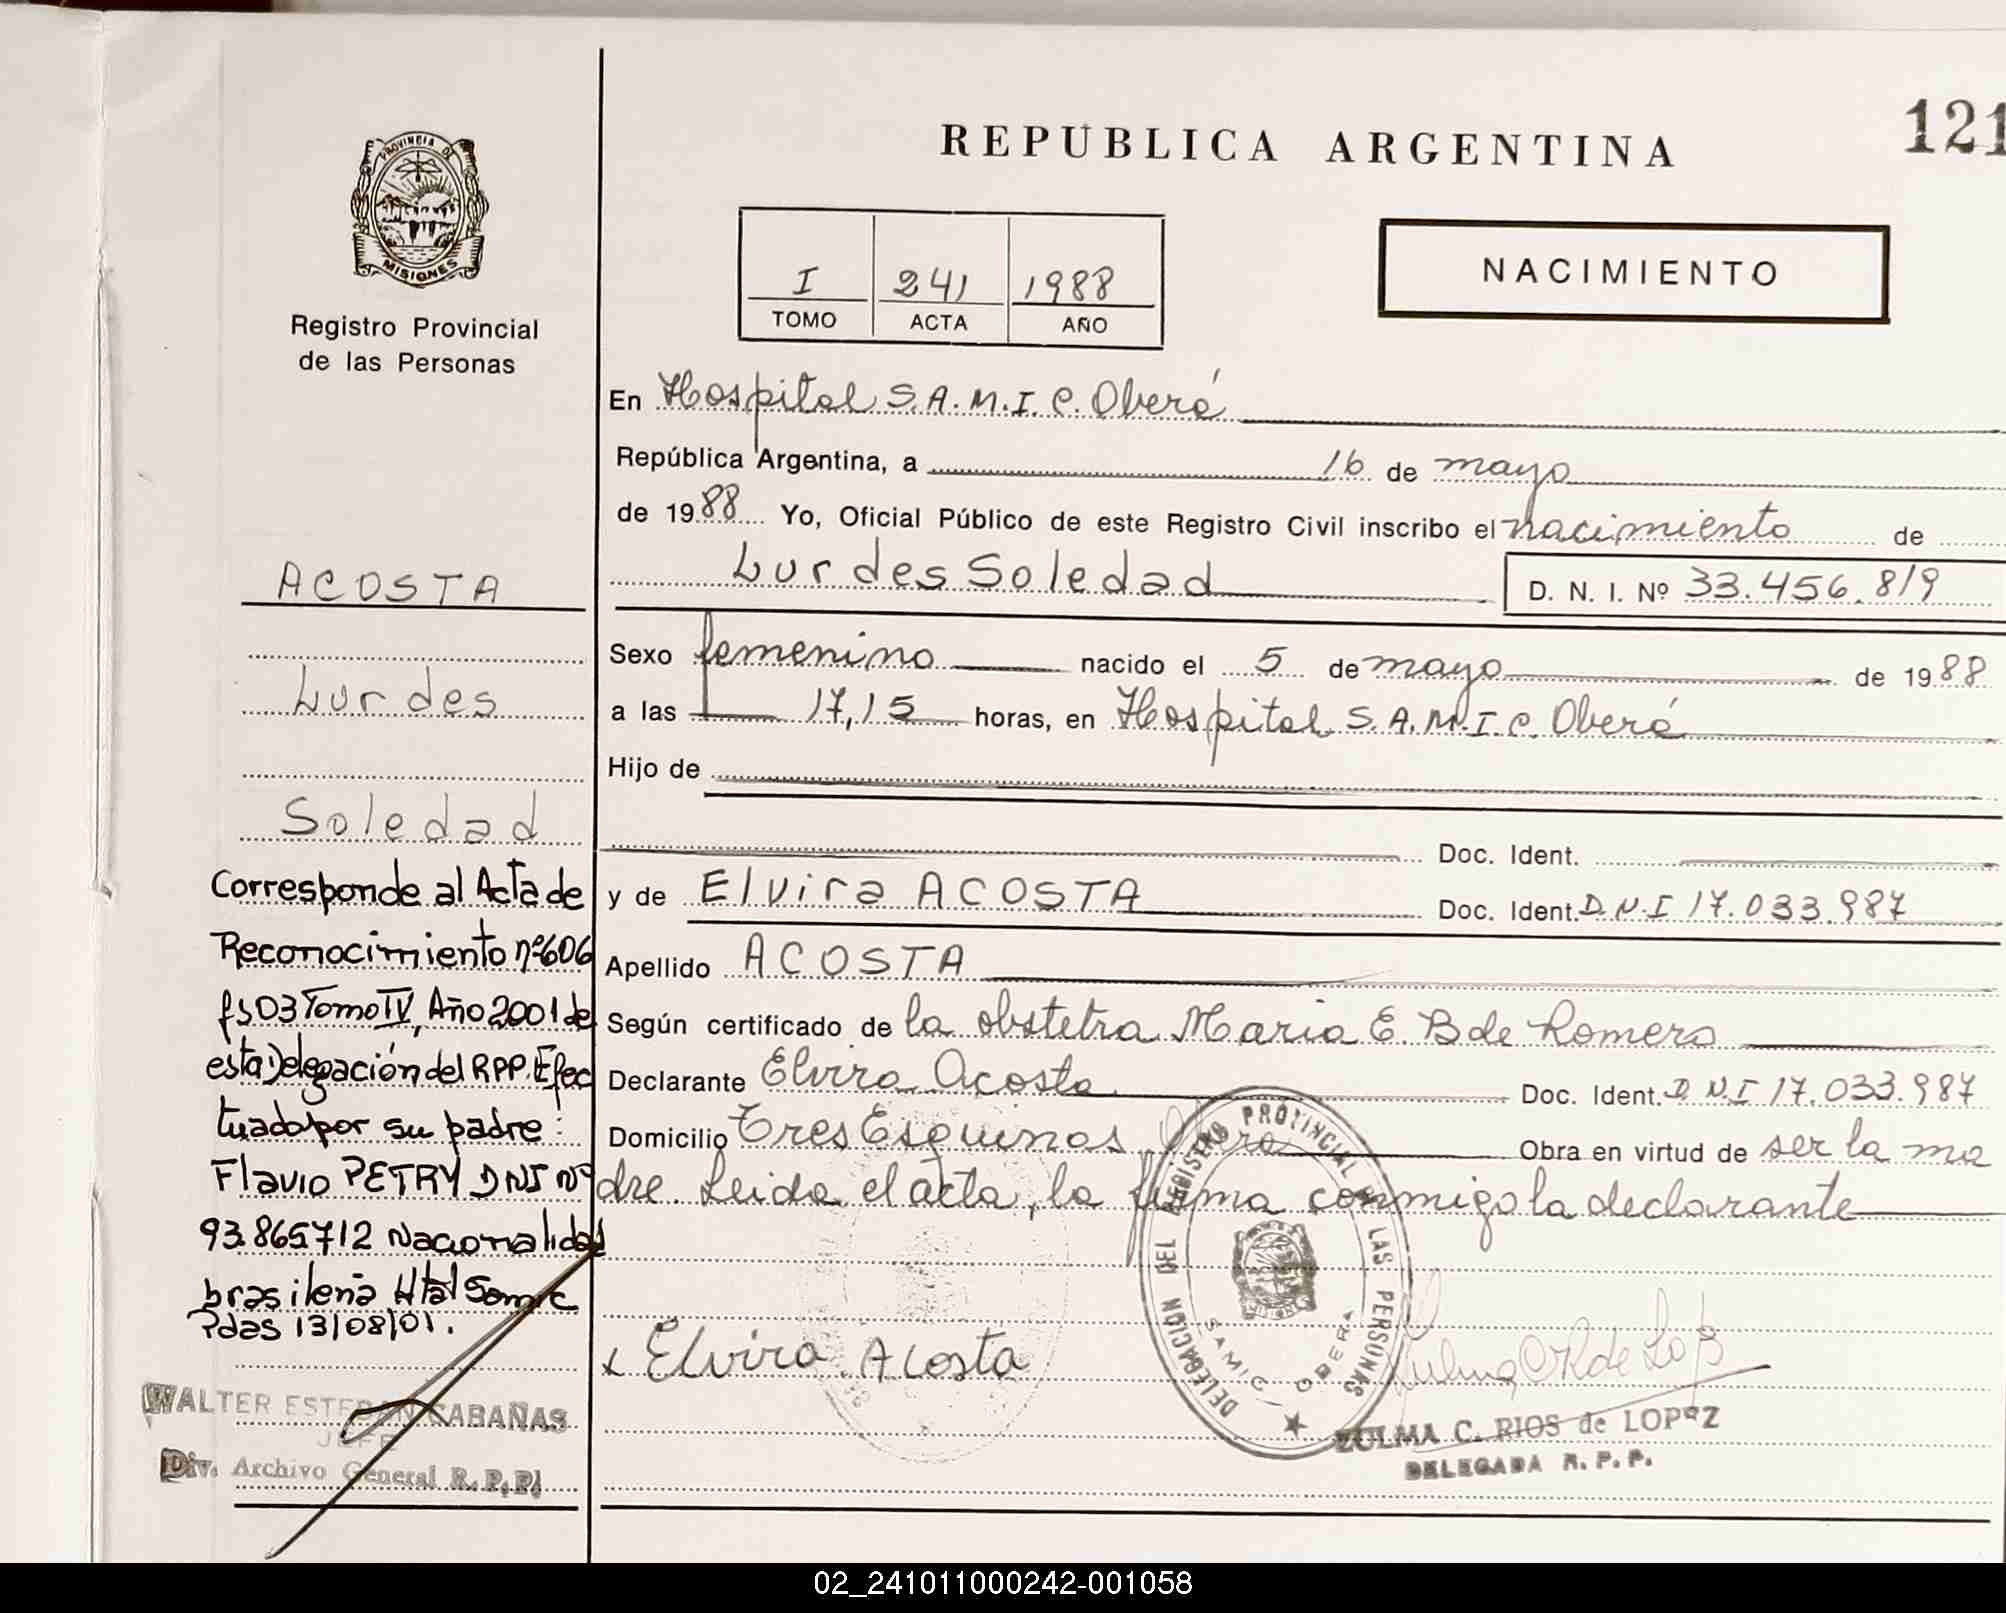 REPUBLICA ARGENTINA
121
PROVINCIA DE
MISIONES
Registro Provincial
de las Personas
I 241 1988
TOMO ACTA AÑO
NACIMIENTO
En Hospital S.A.M.I.C. Oberá
República Argentina, a 16 de mayo
de 1988 Yo, Oficial Público de este Registro Civil inscribo el nacimiento de
Lurdes Soledad D. N. I. Nº 33.456.819
Sexo femenino nacido el 5 de mayo de 1988
a las 17,15 horas, en Hospital S.A.M.I.C. Oberá
Hijo de
Doc. Ident.
y de Elvira ACOSTA Doc. Ident. D.N.I 17.033.987
Apellido ACOSTA
Según certificado de la obstetra Maria E. B de Romero
Declarante Elvira Acosta Doc. Ident. D.N.I 17.033.987
Domicilio Tres Esquinas Obra en virtud de ser la ma
dre. Leida el acta, la firma conmigo la declarante
x Elvira Acosta
DELEGACION DEL REGISTRO PROVINCIAL LAS PERSONAS
SAMIC OBERA
ZULMA C. RIOS de LOPEZ
DELEGADA R. P. P.
ACOSTA
Lurdes
Soledad
Corresponde al Acta de
Reconocimiento nº 606
fs 03 Tomo IV, Año 2001 de
esta Delegación del RPP. Efec
tuado por su padre:
Flavio PETRY DNI Nº
93.865712 Nacionalidad
brasileña Htal Samic
Pdas 13/08/01.
WALTER ESTEBAN CABAÑAS
JEFE
Div. Archivo General R. P. P.
02_241011000242-001058